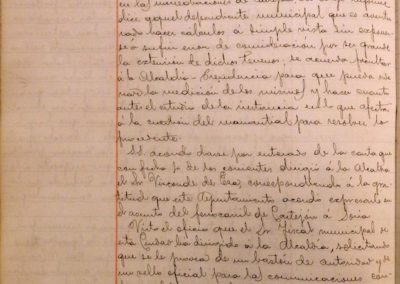 en las inmediaciones de
dice aquel dependiente municipal que es aventu
rado hacer calculos á simple vista sin exponer
se á sufrir error de consideración por ser grande
la extension de dichos terrenos; se acuerda facultar
á la Alcaldia-Presidencia para que pueda orde
nar la medición de los mismos y hacer cuanto
ante el estudio de la instancia en lo que afecta
á la cuestión del manantial para resolver lo
procedente.
Se acordó darse por enterado de la carta que
con fecha 7 de los corrientes dirigió á la Alcaldia
el Sr. Vizconde de Eza, correspondiendo á la gra
titud que este Ayuntamiento acordó expresarle en
el asunto del ferrocarril de Castejon á Soria.
Visto el oficio que el Sr. Fiscal municipal de
esta Ciudad ha dirigido á la Alcaldia, solicitando
que se le provea de un bastón de autoridad y de
un sello oficial para las comunicaciones con